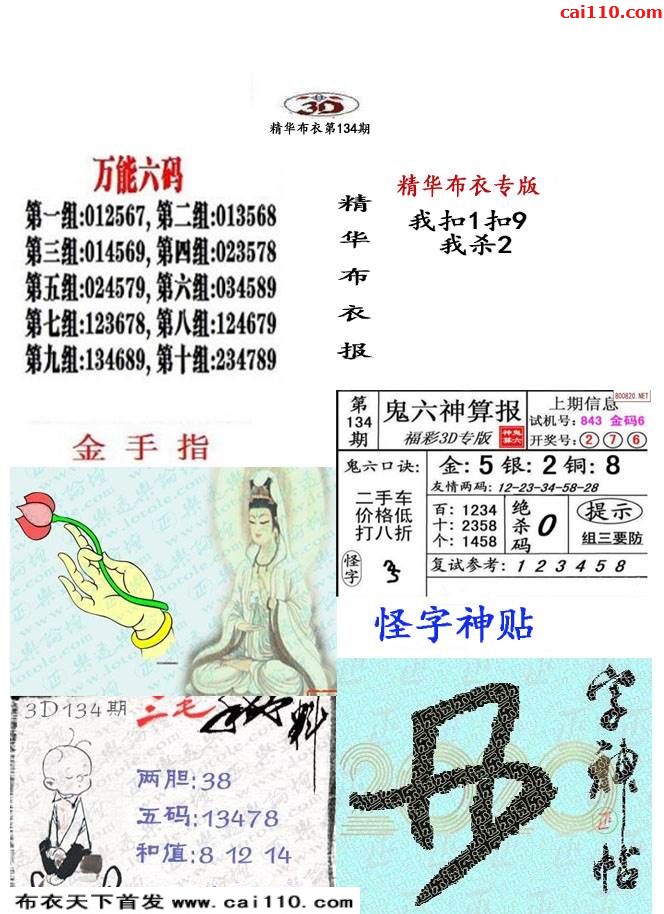 cai110.com
3D
精华布衣第134期
万能六码
第一组:012567, 第二组:013568
第三组:014569, 第四组:023578
第五组:024579, 第六组:034589
第七组:123678, 第八组:124679
第九组:134689, 第十组:234789
精华布衣报
精华布衣专版
我扣1扣9
我杀2
金手指
第134期
鬼六神算报
福彩3D专版
上期信息
800820.NET
试机号: 843 金码6
开奖号: 2 7 6
鬼六口诀:
二手车
价格低
打八折
怪字
金: 5 银: 2 铜: 8
友情两码: 12-23-34-58-28
百: 1234
十: 2358
个: 1458
绝杀码
0
提示
组三要防
复试参考: 1 2 3 4 5 8
怪字神贴
字神帖
3D134期
三毛
料
两胆:38
五码:13478
和值:8 12 14
布衣天下首发 www.cai110.com